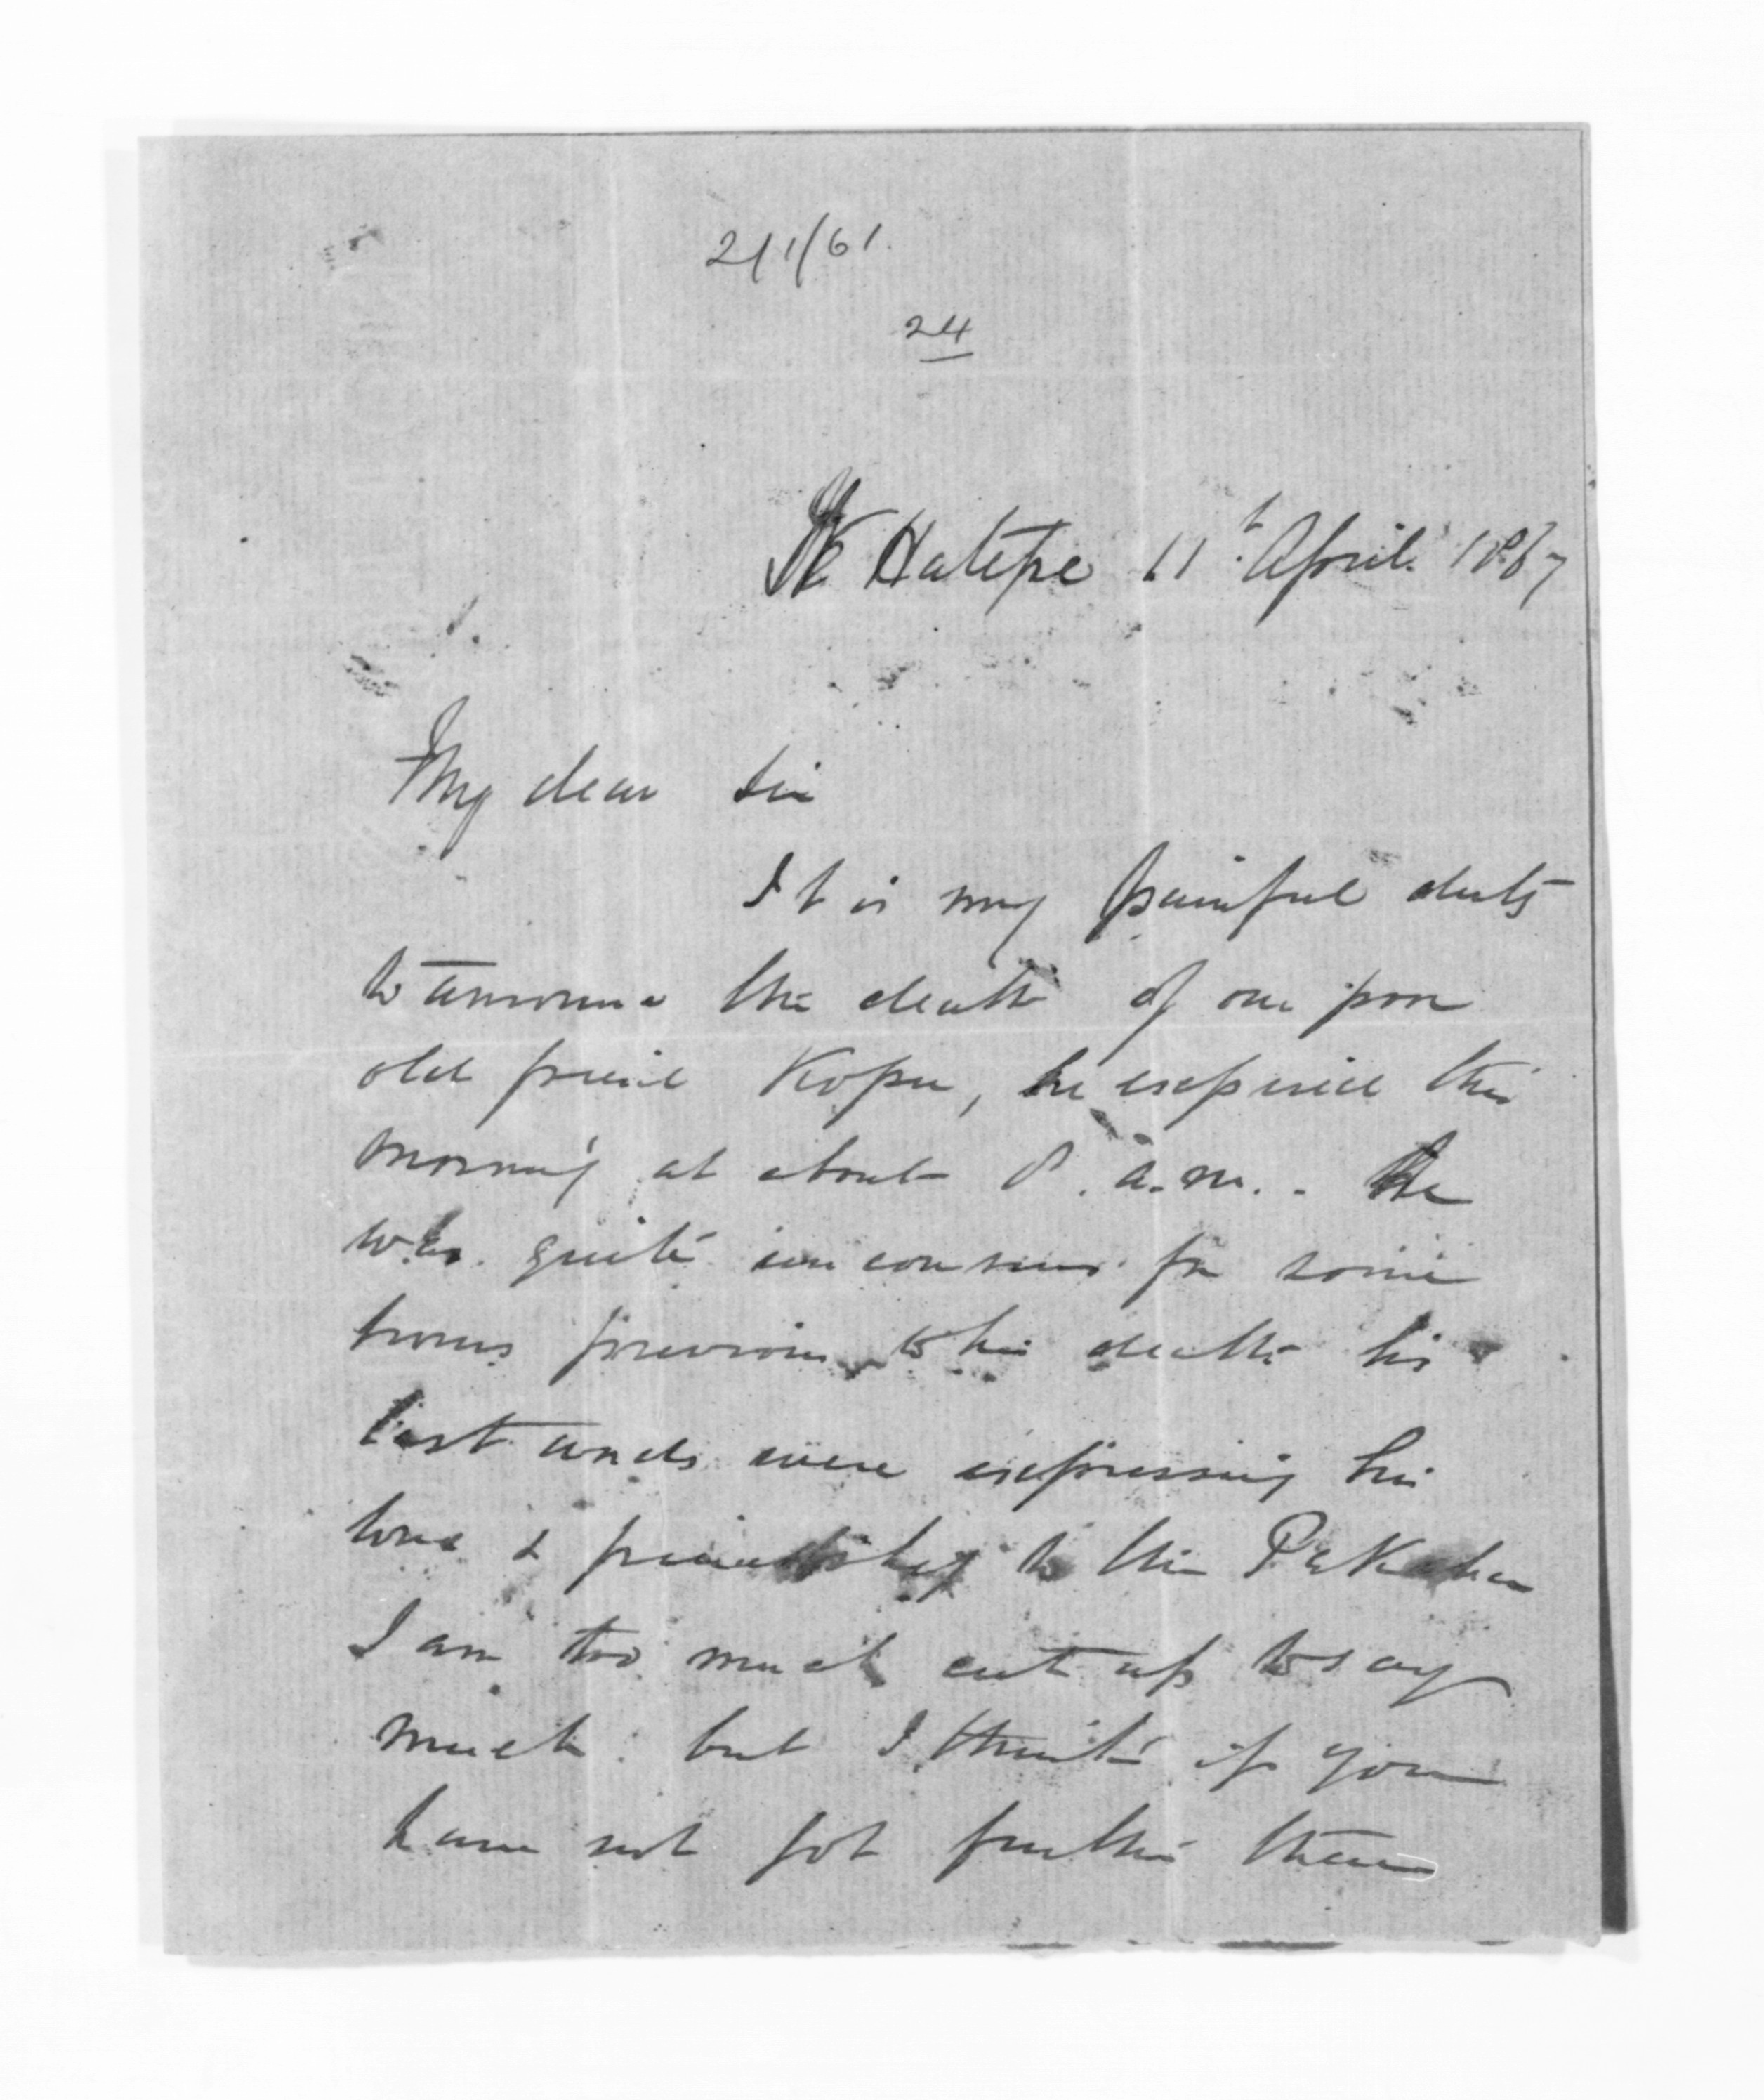 2/1/61.
24
Te Hatepe 11th April. 1867
My dear Sir
It is my painful duty
to announce the death of our poor
old friend Kopu, he expired this
morning at about 8. a.m. - He
was quite unconscious for some
hours previous to his death his
last words were expressing his
love & friendship to the Pakeha
I am too much cut up to say
much but I think if you
have not got further than